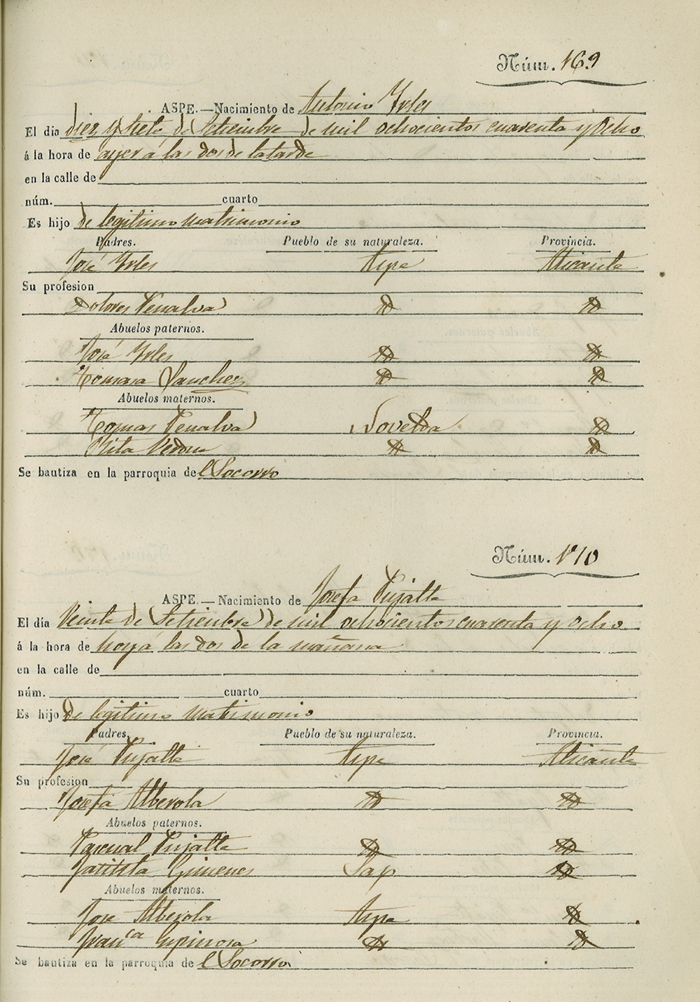 Núm. 169
ASPE.—Nacimiento de Antonio Yrles
El día diez y siete de Setiembre de mil ochocientos cuarenta y Ocho
á la hora de ayer á las dos de la tarde
en la calle de
núm. cuarto
Es hijo de legitimo matrimonio
Padres. Pueblo de su naturaleza. Provincia.
José Yrles Aspe Alicante
Su profesion
Dolores Penalva
Abuelos paternos.
José Yrles
Tomasa Sanchez
Abuelos maternos.
Tomas Penalva Novelda
Rita
Se bautiza en la parroquia del Socorro
Núm. 170
ASPE.—Nacimiento de Josefa Pujalte
El día Veinte de Setiembre de mil ochocientos cuarenta y Ocho
á la hora de hoy á las dos de la mañana
en la calle de
núm. cuarto
Es hijo de legitimo matrimonio
Padres. Pueblo de su naturaleza. Provincia.
José Pujalte Aspe Alicante
Su profesion
Josefa Alberola
Abuelos paternos.
Pascual Pujalte
Gimenes Sax
Abuelos maternos.
José Alberola Aspe
Fran.ca Espinosa
Se bautiza en la parroquia de el Socorro